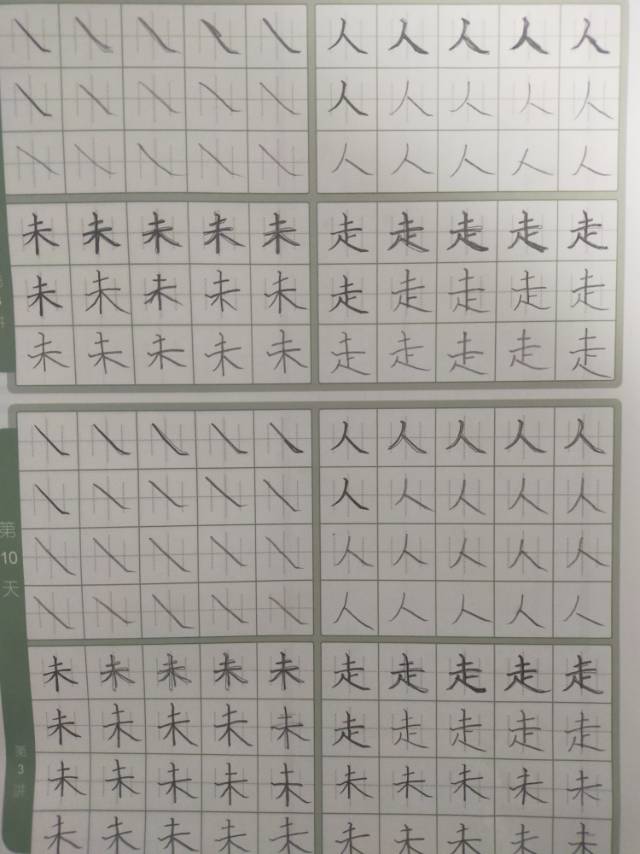 ㇏ ㇏ ㇏ ㇏ ㇏ 人 人 人 人 人
㇏ ㇏ ㇏ ㇏ ㇏ 人 人 人 人 人
㇏ ㇏ ㇏ ㇏ ㇏ 人 人 人 人 人
未 未 未 未 未 走 走 走 走 走
未 未 未 未 未 走 走 走 走 走
未 未 未 未 未 走 走 走 走 走
第
10
天
㇏ ㇏ ㇏ ㇏ ㇏ 人 人 人 人 人
㇏ ㇏ ㇏ ㇏ ㇏ 人 人 人 人 人
㇏ ㇏ ㇏ ㇏ ㇏ 人 人 人 人 人
㇏ ㇏ ㇏ ㇏ ㇏ 人 人 人 人 人
第
3
讲
未 未 未 未 未 走 走 走 走 走
未 未 未 未 未 走 走 走 走 走
未 未 未 未 未 未 未 未 未 未
未 未 未 未 未 未 未 未 未 未